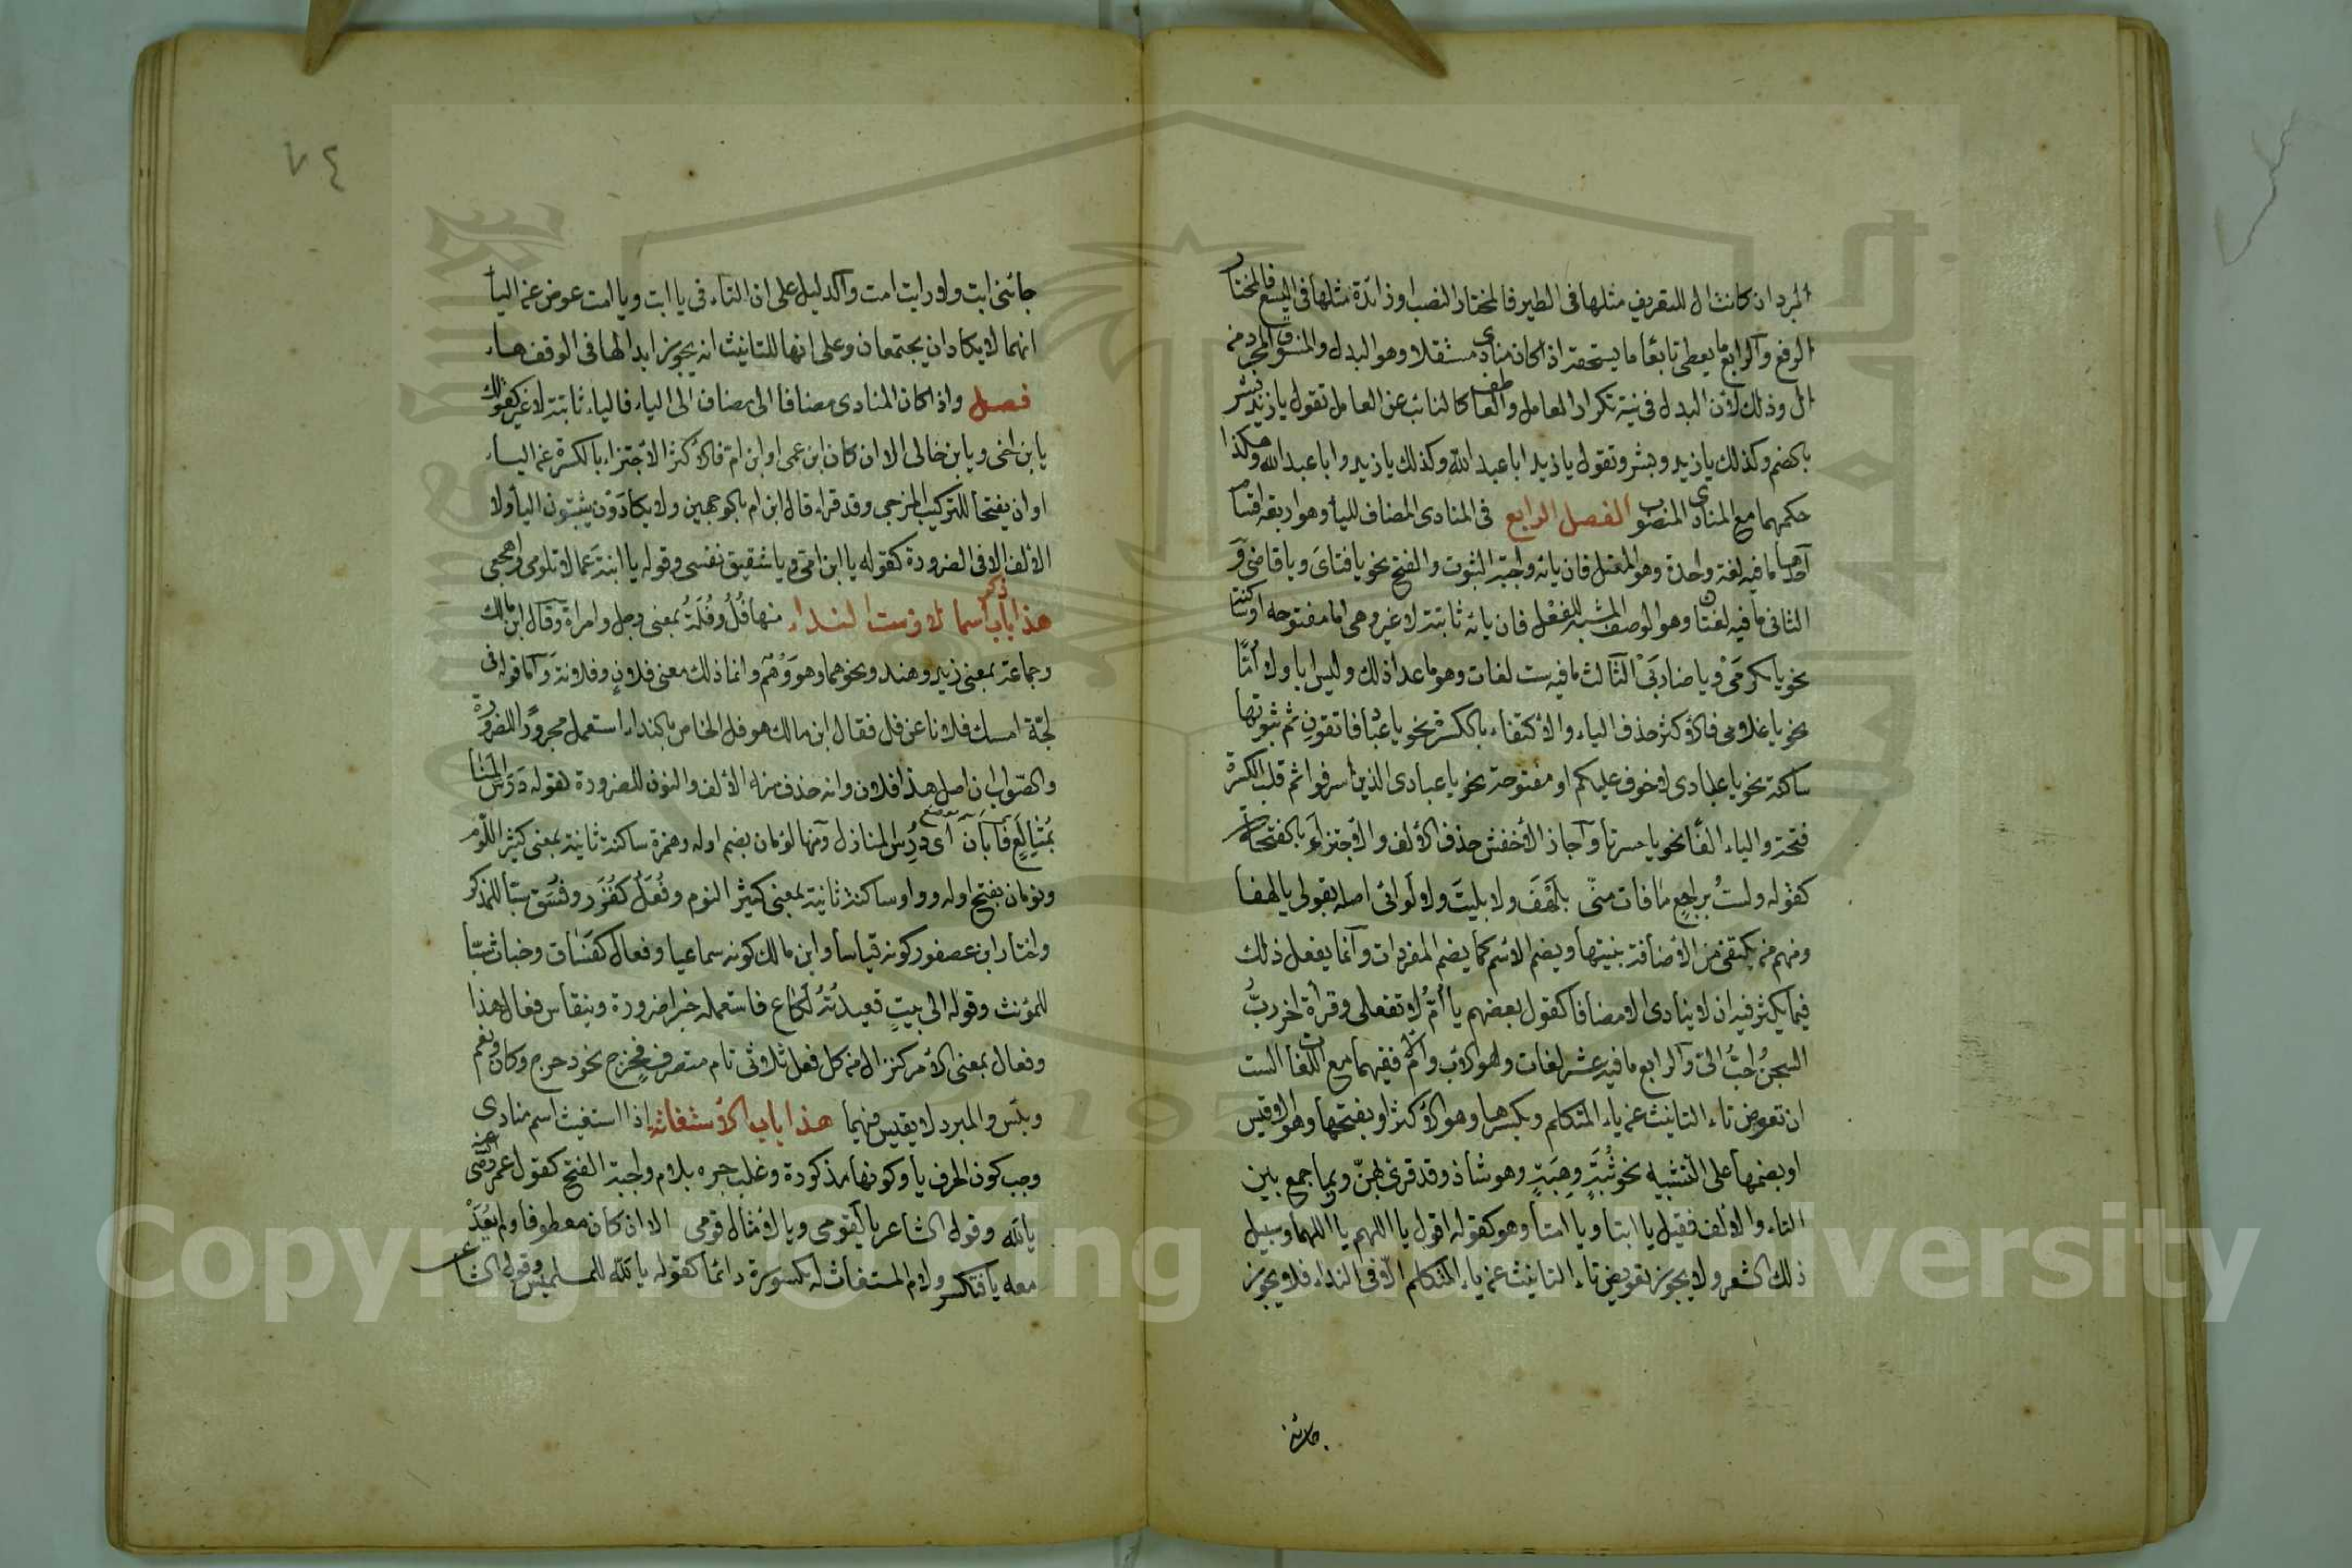 المبرد ان كانت ال للتعريف مثلها فى الطير فالمختار النصب او زائدة مثلها فى اليسع فالمختار
الرفع والرابع ما يعطى تابعًا ما يستحقه اذا كان منادى مستقلا وهو البدل والمنسوق المجرد من
ال وذلك لان البدل فى نية تكرار العامل والعاطف كالنائب عن العامل تقول يا زيد بشر
بالضم وكذلك يا زيد وبشر وتقول يا زيد ابا عبد الله وكذلك يا زيد وابا عبد الله وهكذا
حكمهما مع المنادى المنصوب الفصل الرابع فى المنادى المضاف للياء وهو اربعة اقسام
احدها ما فيه لغة واحدة وهو المعتل فان يائه واجبة الثبوت والفتح نحو يا فتاىَ ويا قاضىَّ و
الثانى ما فيه لغتان وهو الوصف المشبه للفعل فان يائه ثابتة لا غير وهى اما مفتوحه او ساكنة
نحو يا مكرمىَ ويا ضاربىَ الثالث ما فيه ست لغات وهو ما عدا ذلك وليس ابا ولا أمًّا
نحو يا غلامى فالأكثر حذف الياء والاكتفاء بالكسرة نحو يا عباد فاتقون ثم ثبوتها
ساكنة نحو يا عبادى لا خوف عليكم او مفتوحة نحو يا عبادى الذين اسرفوا ثم قلب الكسرة
فتحة والياء الفًا نحو يا حسرتا واجاز الأخفش حذف الألف والاجتزاء بالفتحة
كقوله ولستُ براجعٍ ما فات منّى بلهفَ ولا بليتَ ولا لوانى اصله بقولى يا لهفا
ومنهم من يكتفى من الأضافة بنيتها ويضم الاسم كما يضم المفردات وانما يفعل ذلك
فيما يكثر فيه ان لا ينادى الا مضافا كقول بعضهم يا أمُّ لا تفعلى وقرأة اخر ربُّ
السجنُ احبُّ الىّ والرابع ما فيه عشر لغات وهو الاب والام ففيهما مع اللغات الست
ان تعوض تاء التانيث عن ياء المتكلم وبكسرها وهو الأكثر او بفتحها وهو الاقيس
او بضمها على التشبيه نحو ثُبَةٍ وهِبَةٍ وهو شاذ وقد قرئ بهنّ وربما جمع بين
التاء والألف فقيل يا ابتا ويا امتا وهو كقوله اقول يا اللهم يا اللهما وسبيل
ذلك الشعر ولا يجوز تعويض تاء التانيث عن ياء المتكلم الّا فى النداء فلا يجوز
جائنى
٧٤
جائنى ابت ولا رايت امت والدليل على ان التاء فى يا ابت ويا امت عوض عن الياء
انهما لا يكادان يجتمعان وعلى انها للتانيث انه يجوز ابدالها فى الوقف هاء
فصل واذا كان المنادى مضافا الى مضاف الى الياء فالياء ثابتة لا غير كقولك
يا بن اخى ويا بن خالى الا ان كان ابن عمى او ابن ام فالأكثر الأجتزاء بالكسرة عن الياء
او ان يفتحا للتركيب المزجى وقد قراء قال ابن ام بالوجهين ولا يكادون يثبتون الياء ولا
الألف الا فى الضرورة كقوله يا ابن امى ويا شقيق نفسى وقوله يا ابنة عما لا تلومى واهجعى
هذا باب ذكر اسما لازمت النداء منها فُلُ وفُلَةُ بمعنى رجل وامراة وقال ابن مالك
وجماعة بمعنى زيد وهند ونحوهما وهو وَهْم وانما ذلك معنى فلان وفلانة واما قوله فى
لجّة امسك فلانا عن فل فقال ابن مالك هو فل الخاص بالنداء استعمل مجرورًا للضرورة
والصواب ان اصل هذا فلان وانه حذف منه الألف والنون للضرورة كقوله دَرَسَ المنا
بمُتَالِعٍ فأبان اى دُرِس المنازل ومنها لؤمان بضم اوله وهمزة ساكنة ثانية بمعنى كثير اللّوم
ونومان بفتح اوله وواو ساكنة ثانية بمعنى كثير النوم وفُعَل كغُدَر وفُسَق سبّا للمذكر
واختار ابن عصفور كونه قياسا وابن مالك كونه سماعيا وفعال كفَسَاق وخباث سبّا
للمؤنث وقوله الى بيتٍ قعيدتُهُ لَكَاع فاستعمله خبرا ضرورة وينقاس فعال هذا
وفعال بمعنى الأمر كنزال من كل فعل ثلاثى تام متصرف فخرج نحو دحرج وكان ونعم
وبئس والمبرد لا يقيس فيهما هذا باب الأستغاثه اذا استغيث اسم منادى
وجب كون الحرف يا وكونها مذكورة وغلب جره بلام واجبة الفتح كقول عمر رضى الله عنه
يا لَله وقول الشاعر يا لَقومى ويا لَأمثال قومى الا ان كان معطوفا ولم يُعَدْ
معه يا فتكسر ولام المستغاث له مكسورة دائما كقوله يا لَله للمسلمين وقول الشاعر
Copyright © King Saud University
1957